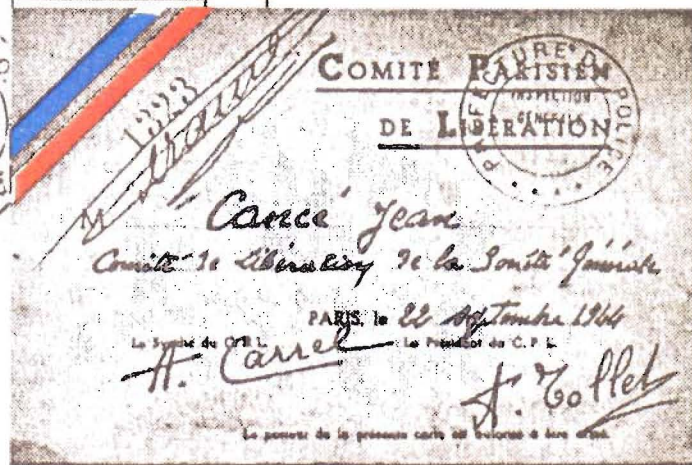 COMITÉ PARISIEN
DE LIBÉRATION
PRÉFECTURE DE POLICE
INSPECTION
GÉNÉRALE
1393
M
Cancé Jean
Comité de Libération de la Société Générale
PARIS, le 22 septembre 1944
Le Syndic du C.P.L. Le Président du C.P.L.
A. Carrel
A. Tollet
Le porteur de la présente carte est autorisé à être armé.